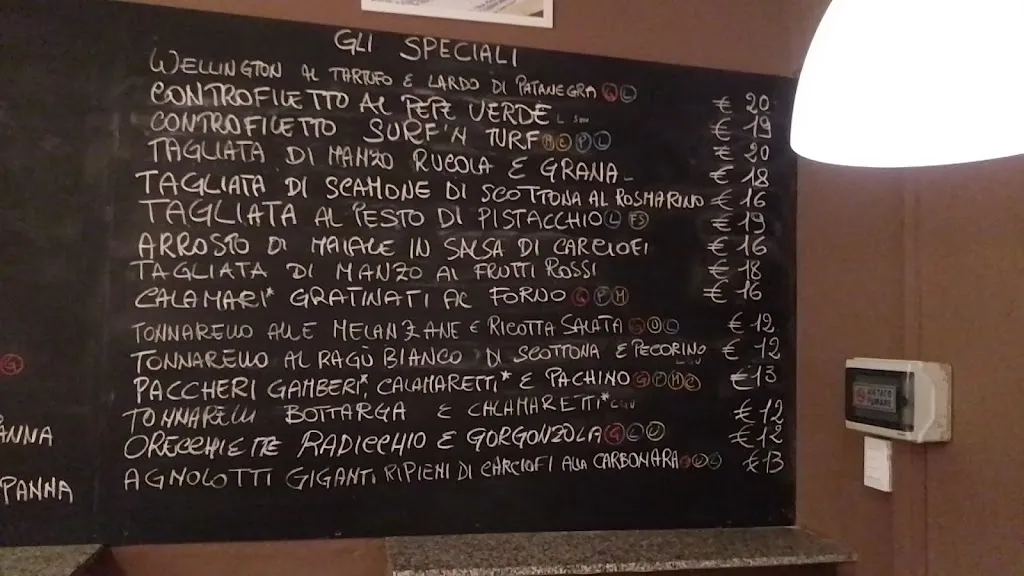 GLI SPECIALI
WELLINGTON AL TARTUFO E LARDO DI PATANEGRA G L € 20
CONTROFILETTO AL PEPE VERDE L € 19
CONTROFILETTO SURF'N TURF € 20
TAGLIATA DI MANZO RUCOLA E GRANA € 18
TAGLIATA DI SCAMONE DI SCOTTONA AL ROSMARINO € 16
TAGLIATA AL PESTO DI PISTACCHIO L FS € 19
ARROSTO DI MAIALE IN SALSA DI CARCIOFI € 16
TAGLIATA DI MANZO AI FRUTTI ROSSI € 18
CALAMARI* GRATINATI AL FORNO G P M € 16
TONNARELLO ALLE MELANZANE E RICOTTA SALATA G U L € 12
TONNARELLO AL RAGÙ BIANCO DI SCOTTONA E PECORINO € 12
PACCHERI GAMBERI*, CALAMARETTI* E PACHINO € 13
TONNARELLI BOTTARGA E CALAMARETTI* € 12
ORECCHIETTE RADICCHIO E GORGONZOLA G L U € 12
AGNOLOTTI GIGANTI RIPIENI DI CARCIOFI ALLA CARBONARA € 13
G
PANNA
PANNA
VIETATO
FUMARE